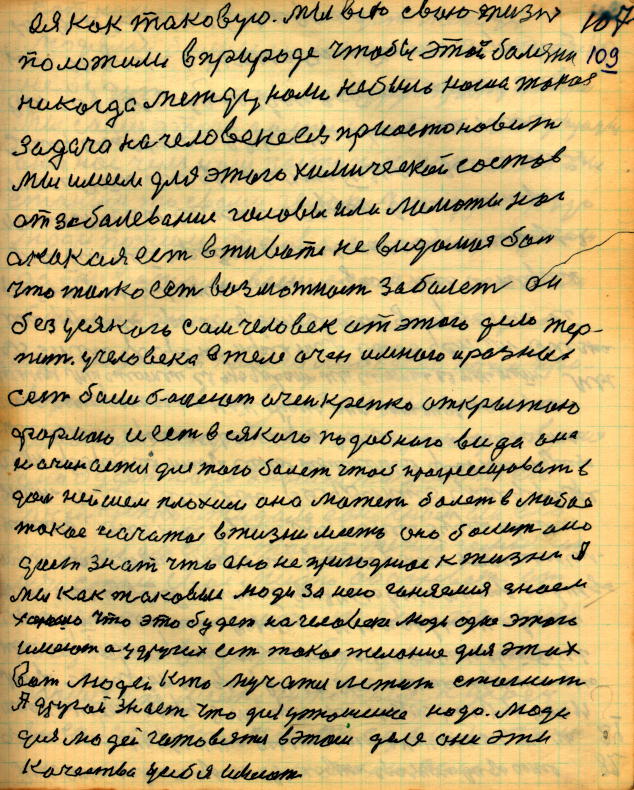 ся как таковую. мы всю свою жизнь 107
положили вприроде чтобы этой болячки 109
никогда между нами небыль наша такая
задачаначеловенеея приостоновит
мы имеем для этого химической состов
от заболевание головы или ломоты ног
акакая ест вживоте не видомая бол
что толко ест возможност заболет он
без усякого сам человек от этого дело тер-
пит. учеловека втеле очен имного иразных
ест боли болеют очен крепко открытою
формою и ест всякого подобного вида она
начинается для того болет чтоб прогрессироват в
дальнейшем плохим она может болет влюбое
такое начатое вжизни месть оно болит ано
дает знат что оно не пригодное кжизни А
мы как таковые люди за нею гоняемся знаем
хорошо что это будет на человеке люди одне этого
имеют аудругих ест такое желание для этих
вот людей кто мучати летит стогнит
А другой знает что для утношение надо. люди
для людей готовяти вэтом деле они эти
качества усебя имеют